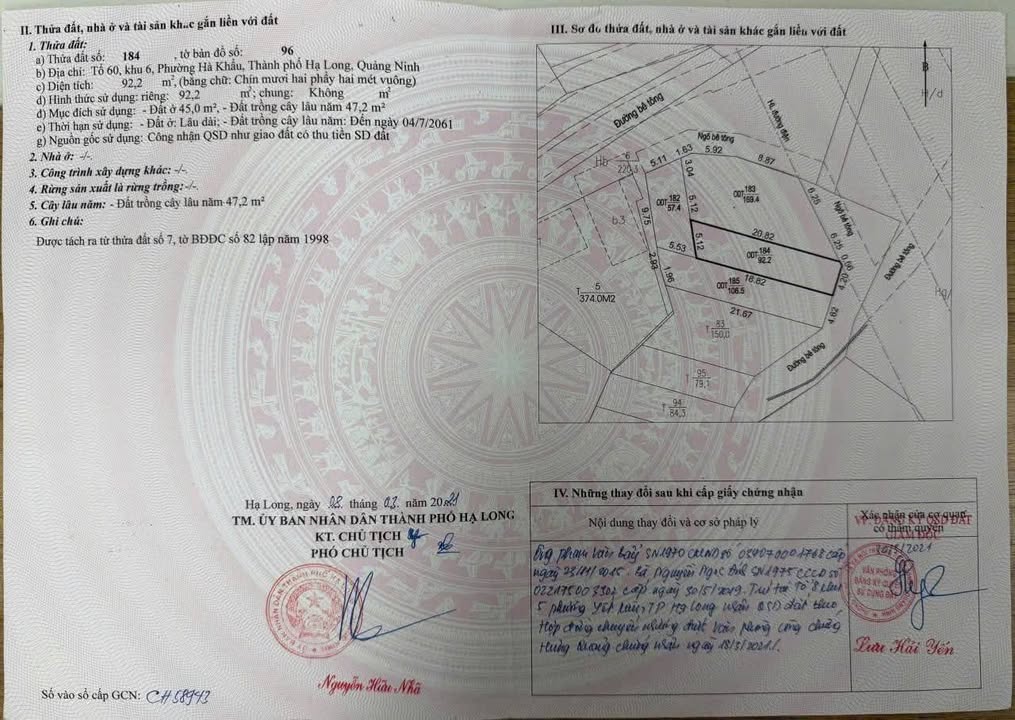 II. Thửa đất, nhà ở và tài sản khác gắn liền với đất
1. Thửa đất:
a) Thửa đất số: 184 , tờ bản đồ số: 96
b) Địa chỉ: Tổ 60, khu 6, Phường Hà Khẩu, Thành phố Hạ Long, Quảng Ninh
c) Diện tích: 92,2 m², (bằng chữ: Chín mươi hai phẩy hai mét vuông)
d) Hình thức sử dụng: riêng: 92,2 m²; chung: Không m²
đ) Mục đích sử dụng: - Đất ở 45,0 m², - Đất trồng cây lâu năm 47,2 m²
e) Thời hạn sử dụng: - Đất ở: Lâu dài; - Đất trồng cây lâu năm: Đến ngày 04/7/2061
g) Nguồn gốc sử dụng: Công nhận QSD như giao đất có thu tiền SD đất
2. Nhà ở: -/-.
3. Công trình xây dựng khác: -/-.
4. Rừng sản xuất là rừng trồng:-/-.
5. Cây lâu năm: - Đất trồng cây lâu năm 47,2 m²
6. Ghi chú:
Được tách ra từ thửa đất số 7, tờ BĐĐC số 82 lập năm 1998
Hạ Long, ngày 08 tháng 03 năm 2021
TM. ỦY BAN NHÂN DÂN THÀNH PHỐ HẠ LONG
KT. CHỦ TỊCH
PHÓ CHỦ TỊCH
Nguyễn Hữu Nhã
Số vào sổ cấp GCN: CH58943
III. Sơ đồ thửa đất, nhà ở và tài sản khác gắn liền với đất
B
Đường bê tông
HL đường điện
Ngõ bê tông
Hb 6 220.3
5.11
1.63
5.92
8.87
3.04
ODT 183 159.4
6.25
Ngõ bê tông
ODT 182 57.4
5.12
b3
9.75
20.82
6.25
0.56
5.53
5.12
ODT 184 92.2
Đường bê tông
2.93
1.96
4.20
ODT 185 106.5
18.82
T 5 374.0M2
21.67
4.62
T 83 150,0
Đường bê tông
T 95 79,1
T 94 84,3
IV. Những thay đổi sau khi cấp giấy chứng nhận
Nội dung thay đổi và cơ sở pháp lý
Xác nhận của cơ quan
có thẩm quyền
VP. ĐĂNG KÝ QSD ĐẤT
GIÁM ĐỐC
Ông Phạm Văn Bảy SN1970 CMND số 
ngày 23/11/2015. Bà Nguyễn Ngọc SN1975 CCCD số
cấp ngày 30/5/2019. Trú tại Tổ 8 khu
5 phường TP Hạ Long nhận QSD đất theo
Hợp đồng chuyển nhượng được Văn phòng công chứng
chứng nhận ngày 18/3/2021.
VĂN PHÒNG
ĐĂNG KÝ QUYỀN
SỬ DỤNG ĐẤT
Lưu Hải Yến